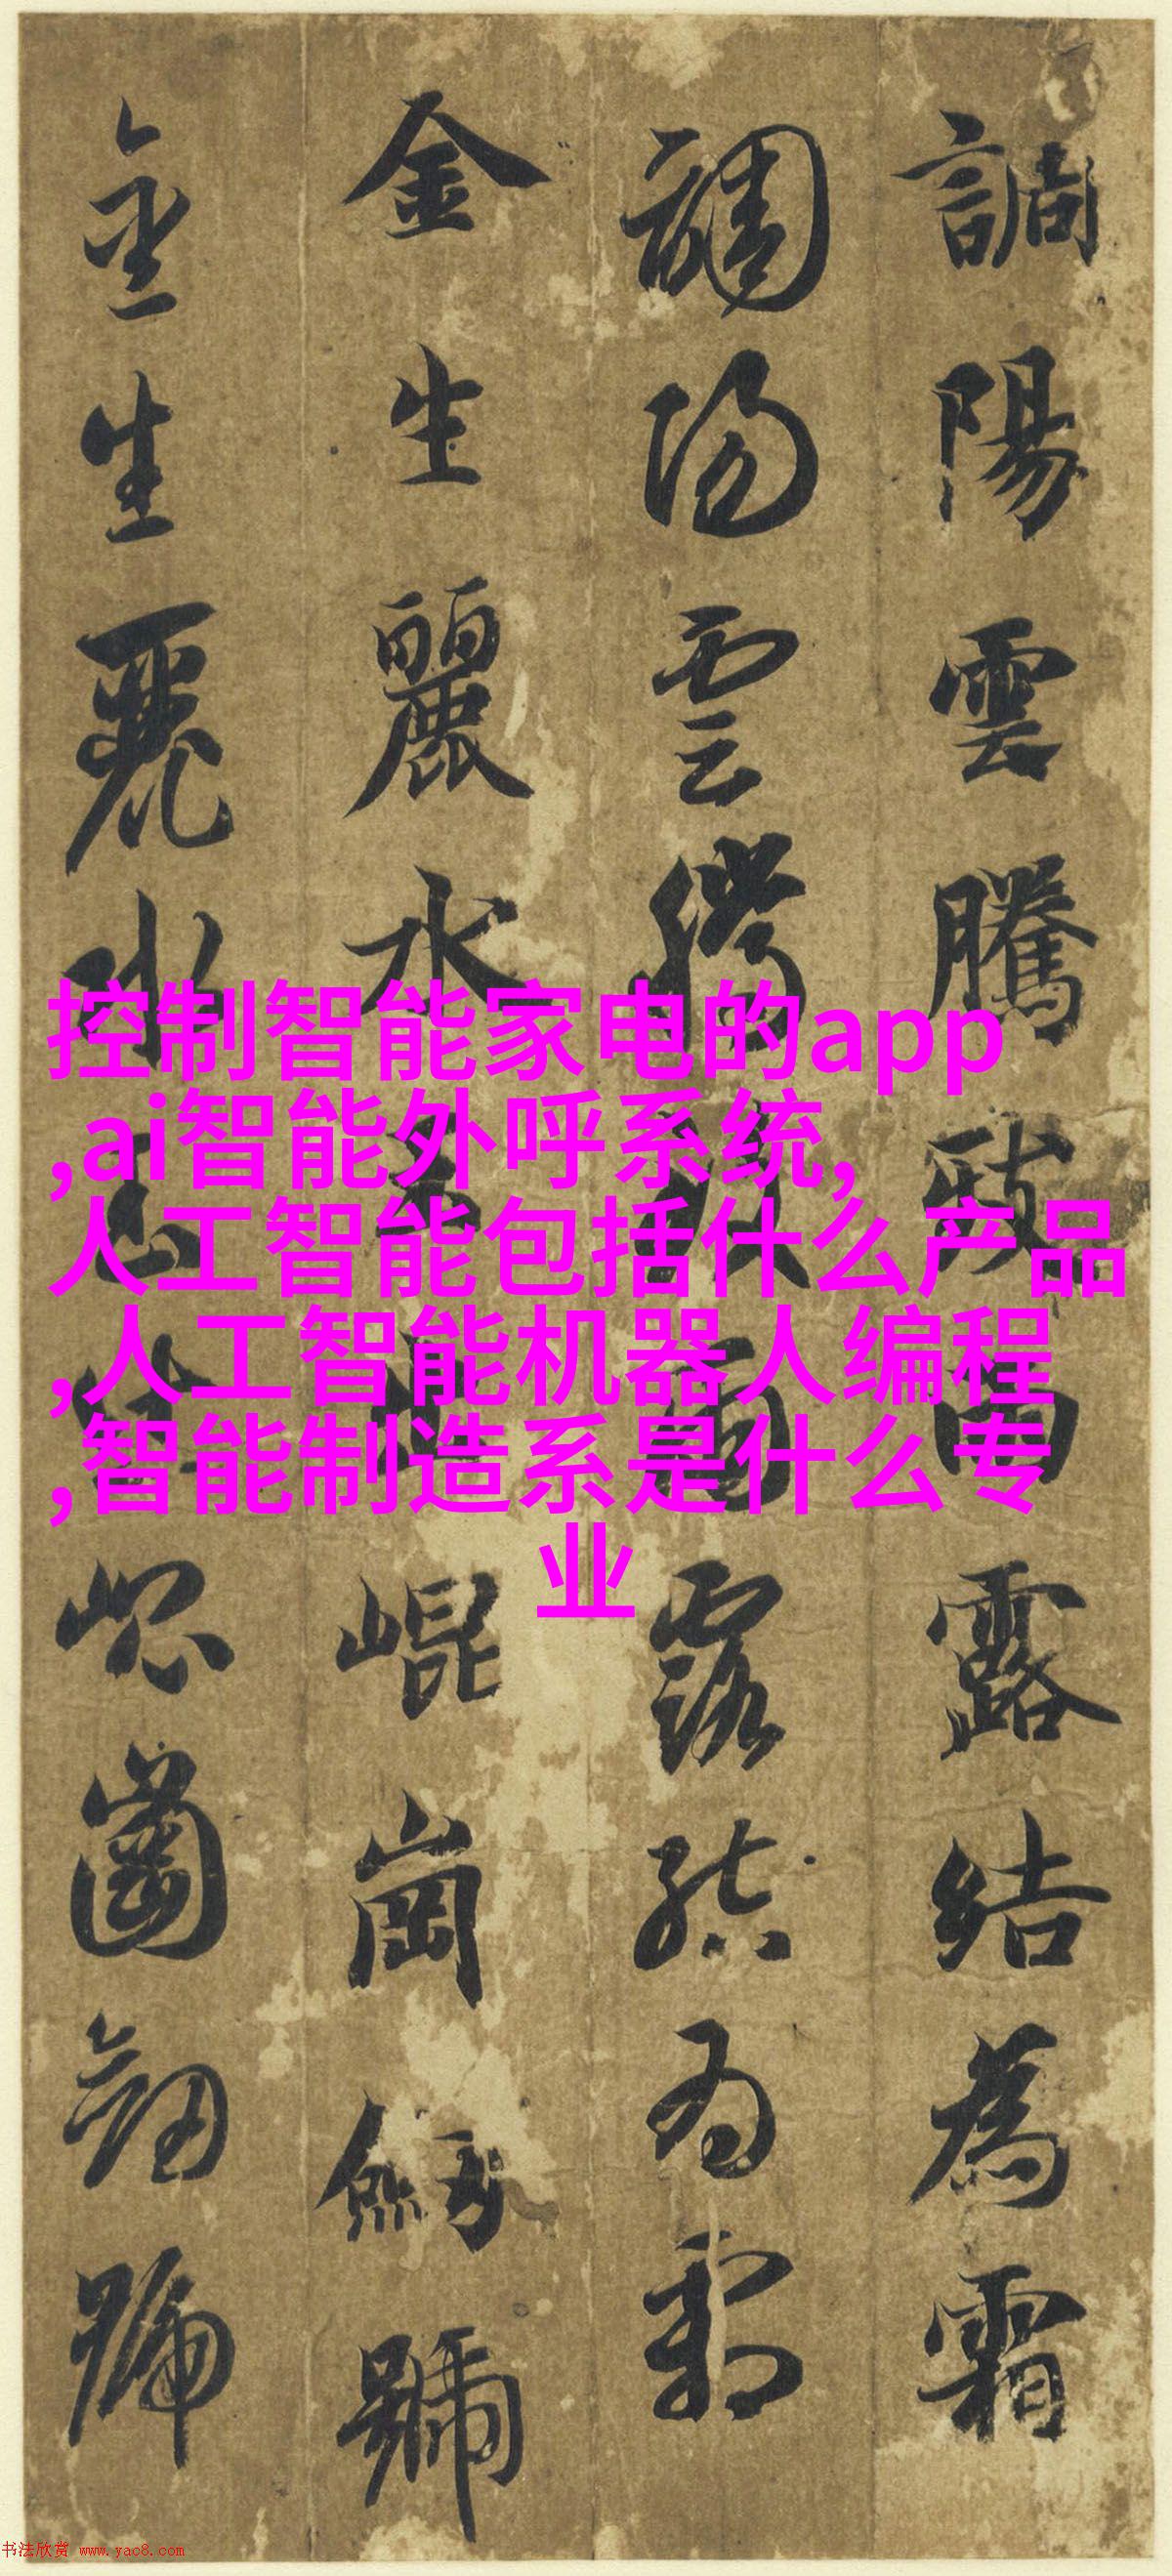 調陽雲騰致雨露結為霜
調陽雲騰致雨露結為霜
金生麗水玉出崐崗劍號
金生麗水玉出崐崗劍號
控制智能家电的app
,ai智能外呼系统,
人工智能包括什么产品
,人工智能机器人编程
,智能制造系是什么专
业
书法欣赏 www.yac8.com